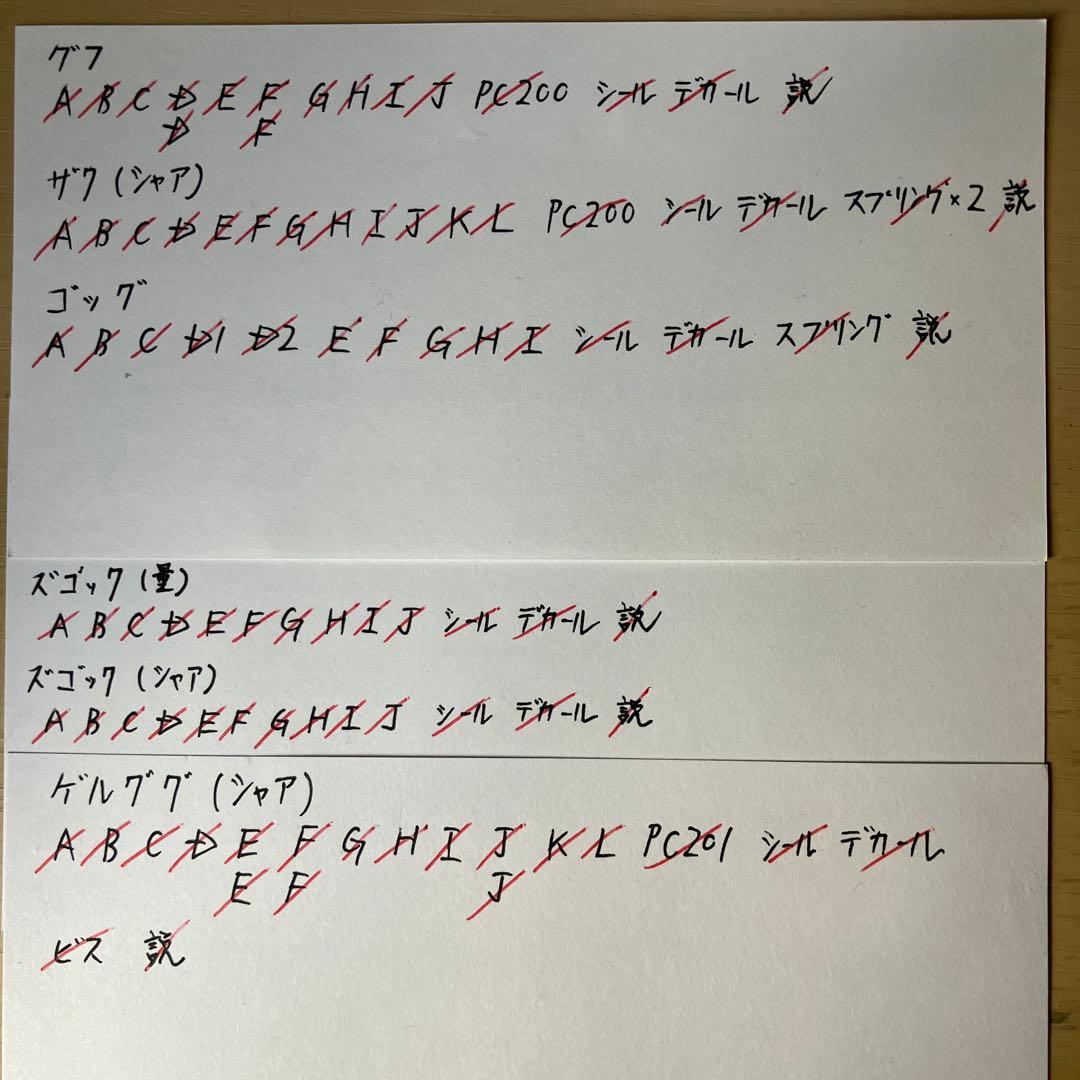 グフ
A B C D E F G H I J PC200 シール デカール 説
D F
ザク(シャア)
A B C D E F G H I J K L PC200 シール デカール スプリング×2 説
ゴッグ
A B C D1 D2 E F G H I シール デカール スプリング 説
ズゴック(量)
A B C D E F G H I J シール デカール 説
ズゴック(シャア)
A B C D E F G H I J シール デカール 説
ゲルググ(シャア)
A B C D E F G H I J K L PC201 シール デカール
E F J
ビス 説